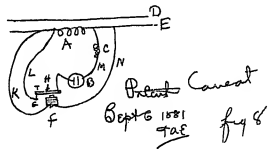 D
E
A
C
K
L
M
N
H
B
I
E
F
Patent Caveat
Sept 6 1881
TAE
fig 8